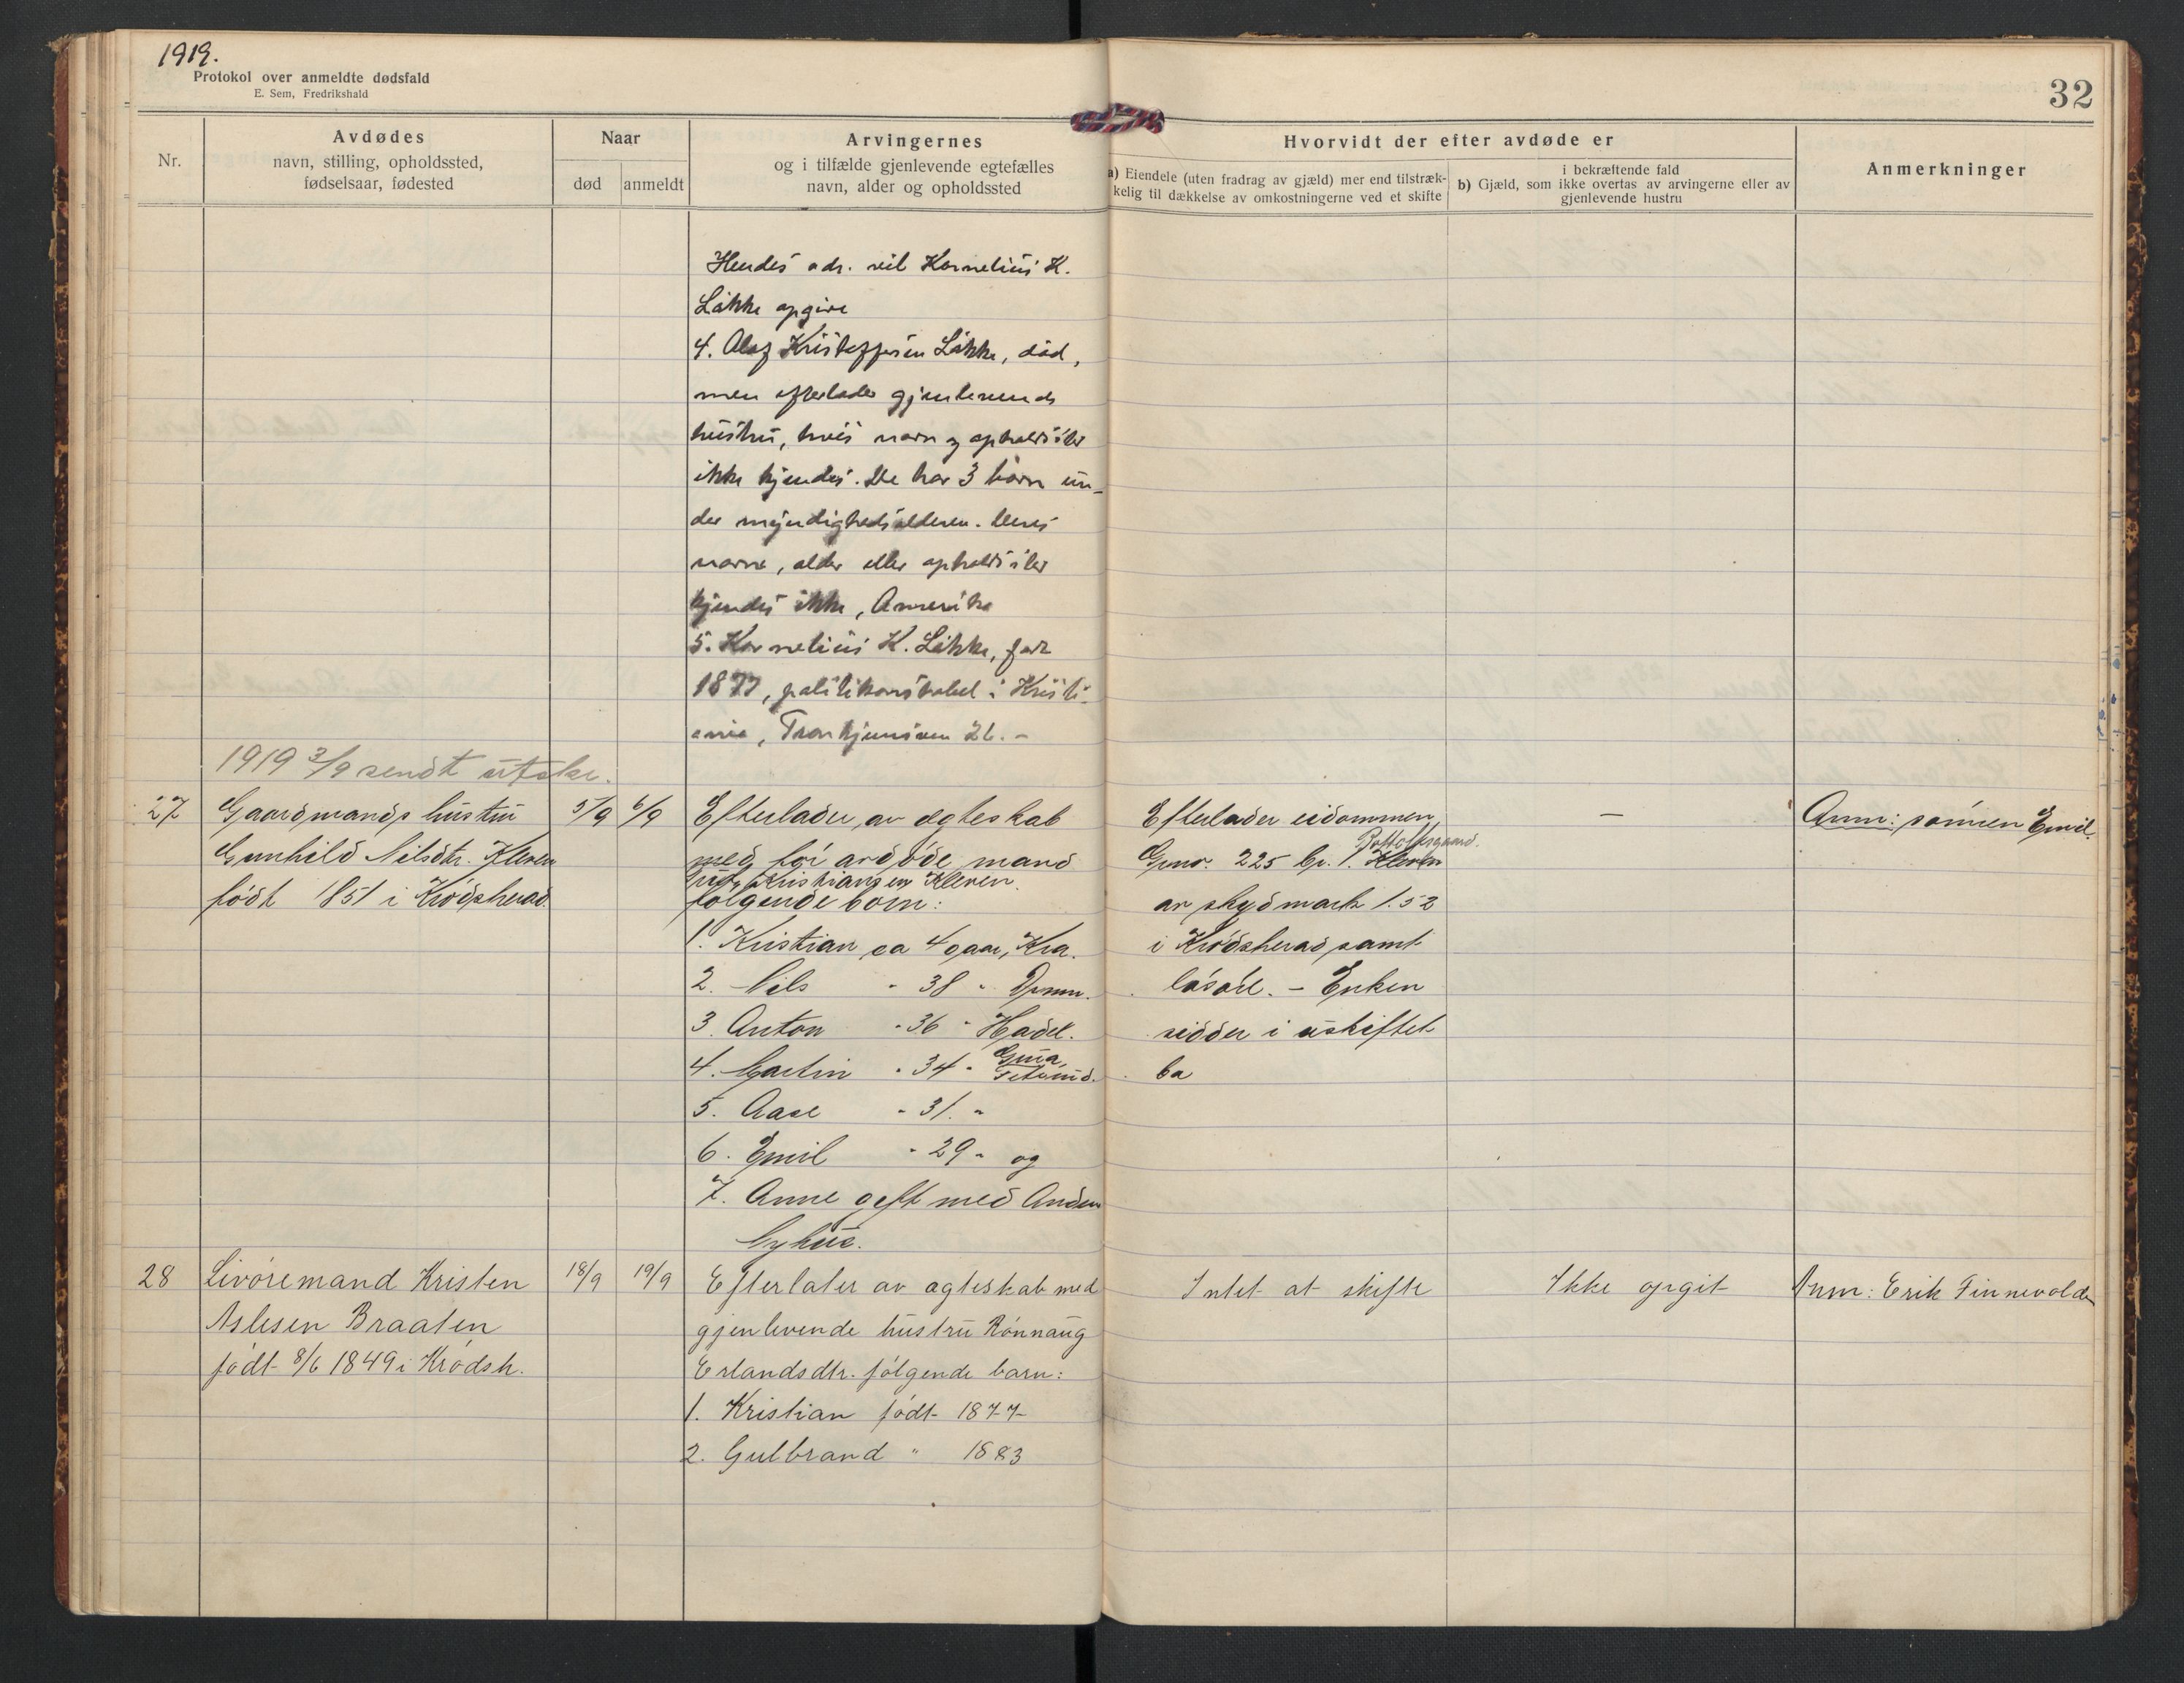 1919.
Protokol over anmeldte dødsfald
E. Sem, Fredrikshald
32
Nr.
Avdødes
navn, stilling, opholdssted,
fødselsaar, fødested
Naar
død
anmeldt
Arvingernes
og i tilfælde gjenlevende egtefælles
navn, alder og opholdssted
Hvorvidt der efter avdøde er
a) Eiendele (uten fradrag av gjæld) mer end tilstræk-
kelig til dækkelse av omkostningerne ved et skifte
i bekræftende fald
b) Gjæld, som ikke overtas av arvingerne eller av
gjenlevende hustru
Anmerkninger
Hendes adr. vil Kornelius K.
Løkke opgive
4. Olaf Kristoffersen Løkke, død,
men efterlader gjenlevende
hustru, hvis navn og opholdssted
ikke kjendes. De har 3 barn un-
der myndighedsalderen. Deres
navne, alder eller opholdssted
kjendes ikke, Amerika
5. Kornelius K. Løkke, født
1877, politikonstabel i Kristi-
ania, 26. -
1919 3/9 sendt utskr.
27 Gaardmands hustru 5/9 6/9 Efterlader av egteskab Efterlader eidommen, — Anm: sønnen Emil
Gunhild Nilsdtr. Kleven med før avdøde mand Gnr. 225 br. 1. Kleven Bottolfsgaard.
Kristiansen Kleven.
født 1851 i Krødsherad. følgende born: av skyd mark 1.52
1. Kristian ca 40 aar, Kra. i Krødsherad samt
2. Nils " 38 " Drmn. løsøre. - Enken
3. Anton " 36 " Hadel. sidder i uskiftet
4. Martin " 34 " bo
5. Aase " 31. "
6. Emil " 29 " og
7. Anne gift med Anders
Myhre.
28 Livøremand Kristen 18/9 19/9 Efterlater av ægteskab med Intet at skifte Ikke opgit Anm: Erik Finnevolden
Aslesen Braaten gjenlevende hustru Rønnaug
født 8/6 1849 i Krødsh. Erlandsdtr. følgende barn:
1. Kristian født 1877
2. Gulbrand " 1883